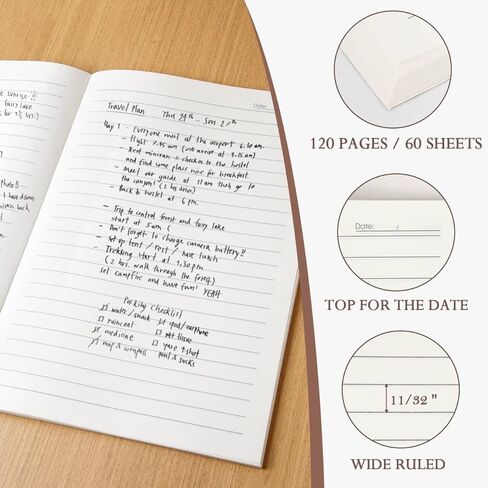 sunrise
fairy lake
Date:
Travel Plan Thu 24th - Sun 27th
Day 1 - Everyone meet at the airport 6.30 am.
- flight 7.45 am (will arrive at 8.25 am)
- Rent minivan → checkin to the hostel
and find some place nice for breakfast.
- Meet our guide at 11 am then go to
the campsit (2 hrs drive)
- Back to hostel at 6 pm.
- Trip to central forest and fairy lake
start at 5 am (
- Don't forget to charge camera battery!!
- Set up tent / rest / have lunch
- Trekking start at 1.30 pm
(2 hrs. walk through the forest)
Set campfire and have fun! YEAH
Packing Checklist
water / snack
raincoat
wet tissue
medicine
spare t-shirt
map & compass pant & socks
120 PAGES / 60 SHEETS
Date: /
TOP FOR THE DATE
11/32"
WIDE RULED